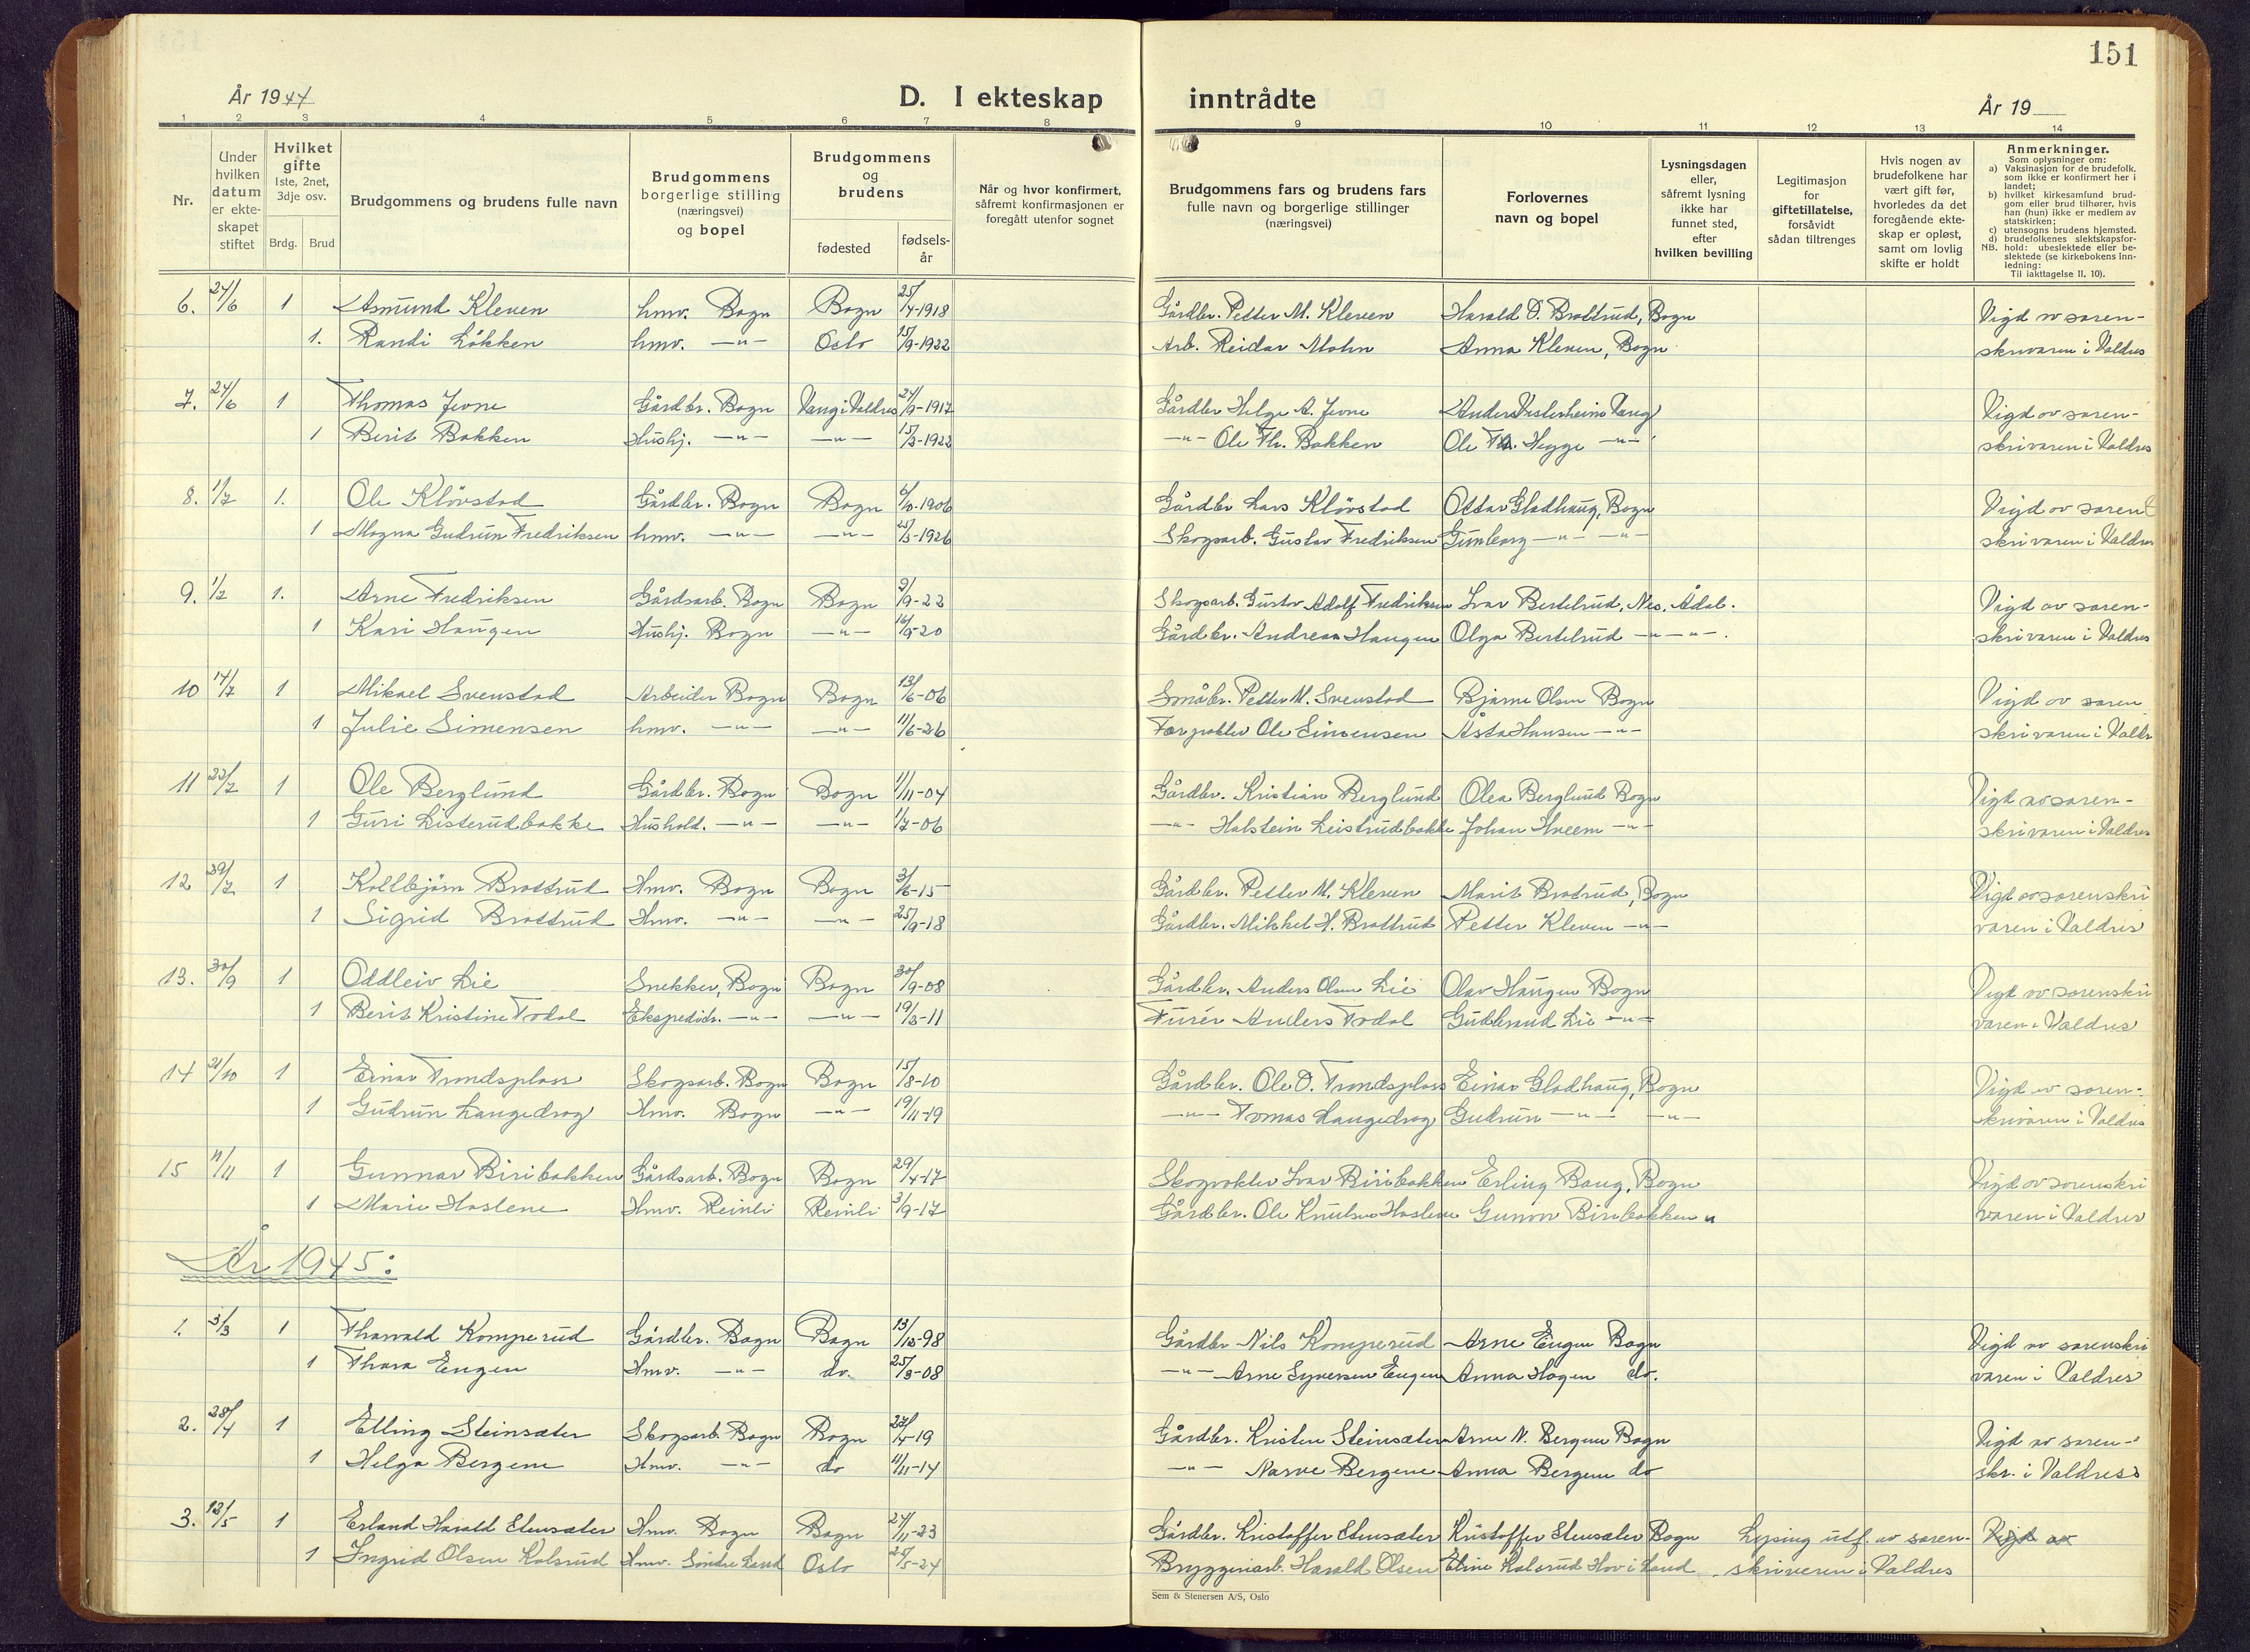 151
År 1944
D. I ekteskap inntrådte
År 19
1 2 3 4 5 6 7 8 9 10 11 12 13 14
Nr.
Under hvilken datum er ekte-skapet stiftet
Hvilket gifte Iste, 2net, 3dje osv.
Brdg. Brud
Brudgommens og brudens fulle navn
Brudgommens borgerlige stilling (næringsvei) og bopel
Brudgommens og brudens
fødested
fødsels-år
Når og hvor konfirmert, såfremt konfirmasjonen er foregått utenfor sognet
Brudgommens fars og brudens fars fulle navn og borgerlige stillinger (næringsvei)
Forlovernes navn og bopel
Lysningsdagen eller, såfremt lysning ikke har funnet sted, efter hvilken bevilling
Legitimasjon for giftetillatelse, forsåvidt sådan tiltrenges
Hvis nogen av brudefolkene har vært gift før, hvorledes da det foregående ekte-skap er opløst, samt om lovlig skifte er holdt
Anmerkninger.
Som oplysninger om:
a) Vaksinasjon for de brudefolk. som ikke er konfirmert her i landet;
b) hvilket kirkesamfund brud-gom eller brud tilhører, hvis han (hun) ikke er medlem av statskirken;
c) utensogns brudens hjemsted.
d) brudefolkenes slektskapsfor-hold: ubeslektede eller be-slektede (se kirkebokens inn-ledning:
NB. Til iakttagelse II, 10).
6. 24/6 1 Asmund Kleven hmv. Bagn Bagn 25/4-1918 Gårdbr. Petter M. Kleven Harald O. Brottrud, Bagn Vigd av soren-
1. Randi Løkken hmv. —"— Oslo 15/9-1922 Arb. Reidar Mohn Anna Kleven, Bagn skrivaren i Valdres
7. 24/6 1 Thomas Jevne Gårdbr. Bagn Vang i Valdres 24/9-1917 Gårdbr Helge A. Jevne Anders Vesterheim Vang Vigd av soren-
1 Berit Bakken Hushj. —"— —"— 15/3-1922 —"— Ole Th. Bakken Ole Th. Hegge —"— skrivaren i Valdres
8. 1/7 1. Ole Kløvstad Gårdbr. Bagn Bagn 1906 Gårdbr Lars Kløvstad Ottar Gladhaug, Bagn Vigd av soren
1 Magna Gudrun Fredriksen hmv. —"— —"— 25/5-1926 Skogsarb. Gustav Fredriksen Gunborg —"— —"— skrivaren i Valdres
9. 1/7 1. Arne Fredriksen Gårdsarb. Bagn Bagn 9/9-22 Skogsarb. Gustav Adolf Fredriksen Ivar Bertelrud, Nes, Ådal. Vigd av soren-
1 Kari Haugen Hushj. Bagn —"— 16/9-20 Gårdbr. Andreas Haugen Olga Bertelrud —"—"—. skrivaren i Valdres
10 14/7 1 Mikael Svenstad Arbeider Bagn Bagn 13/6-06 Småbr. Petter M. Svenstad Bjarne Olsen Bagn Vigd av soren
1 Julie Simensen hmv. —"— —"— 11/6-26 Ole Simensen Åsta Hansen —"— skrivaren i Valdr
11 22/7 1 Ole Berglund Gårdbr. Bagn Bagn 1/11-04 Gårdbr. Kristian Berglund Olea Berglund Bagn Vigd av soren-
1 Guri Listerudbakke Hushold. —"— —"— 1/7-06 —"— Halstein Leistrudbakke Johan Hveem —"— skrivaren i Valdres
12 29/7 1 Kollbjørn Brottrud Hmv. Bagn Bagn 3/6-15 Gårdbr. Petter M. Kleven Marit Brotrud, Bagn Vigd av sorenskri
1 Sigrid Brottrud Hmv. —"— —"— 25/9-18 Gårdbr. Mikkel H. Brottrud Petter Kleven —"— varen i Valdres
13. 30/9 1 Oddleiv Lie Snekker, Bagn Bagn 30/9-08 Gårdbr. Anders Olsen Lie Olav Haugen Bagn Vigd av sorenskri
1 Berit Kristine Fodal Ekspeditr. —"— —"— 19/3-11 Furér Anders Fodal Gudbrand Lie —"— varen i Valdres
14 21/10 1 Einar Trondsplass Skogsarb. Bagn Bagn 15/8-10 Gårdbr. Ole O. Trondsplass Einar Gladhaug, Bagn Vigd av soren-
1 Gudrun Langedrag Hmv. Bagn —"— 19/11-19 —"— Tomas Langedrag Gudrun —"— —"— skrivaren i Valdres
15 11/11 1 Gunnar Biribakken Gårdsarb. Bagn Bagn 29/4-17 Skogvokter Ivar Biribakken Erling Bang, Bagn Vigd av sorenskri
1 Marie Haslene Hmv. Reinli Reinli 3/9-17 Gårdbr. Ole Knutsen Haslene Gunvor Biribakken " varen i Valdres
År 1945:
1. 3/3 1 Tharald Komperud Gårdbr. Bagn Bagn 13/12-98 Gårdbr Nils Komperud Arne Engen Bagn Vigd av sorenskri
1 Thora Engen Hmv. —"— do. 25/3-08 —"— Arne Syversen Engen Anna Hagen do. varen i Valdres
2. 28/4 1 Elling Steinsæter Skogsarb. Bagn Bagn 27/4-19 Gårdbr. Kristen Steinsæter Arne N. Bergene Bagn Vigd av soren-
1 Helga Bergene Hmv. —"— do 11/11-14 —"— Narve Bergene Anna Bergene do skr. i Valdres
3. 12/5 1 Erland Harald Stensæter Hmv. Bagn Bagn 27/11-23 Gårdbr. Kristoffer Stensæter Kristoffer Stensæter Bagn Lysing utf. av soren- Vigd av
1 Ingrid Olsen Kalsrud Hmv. Søndre Land Oslo 25/5-24 Bryggeriarb. Harald Olsen Eline Kalsrud Hov i Land. skriveren i Valdres
Sem & Stenersen A/S, Oslo